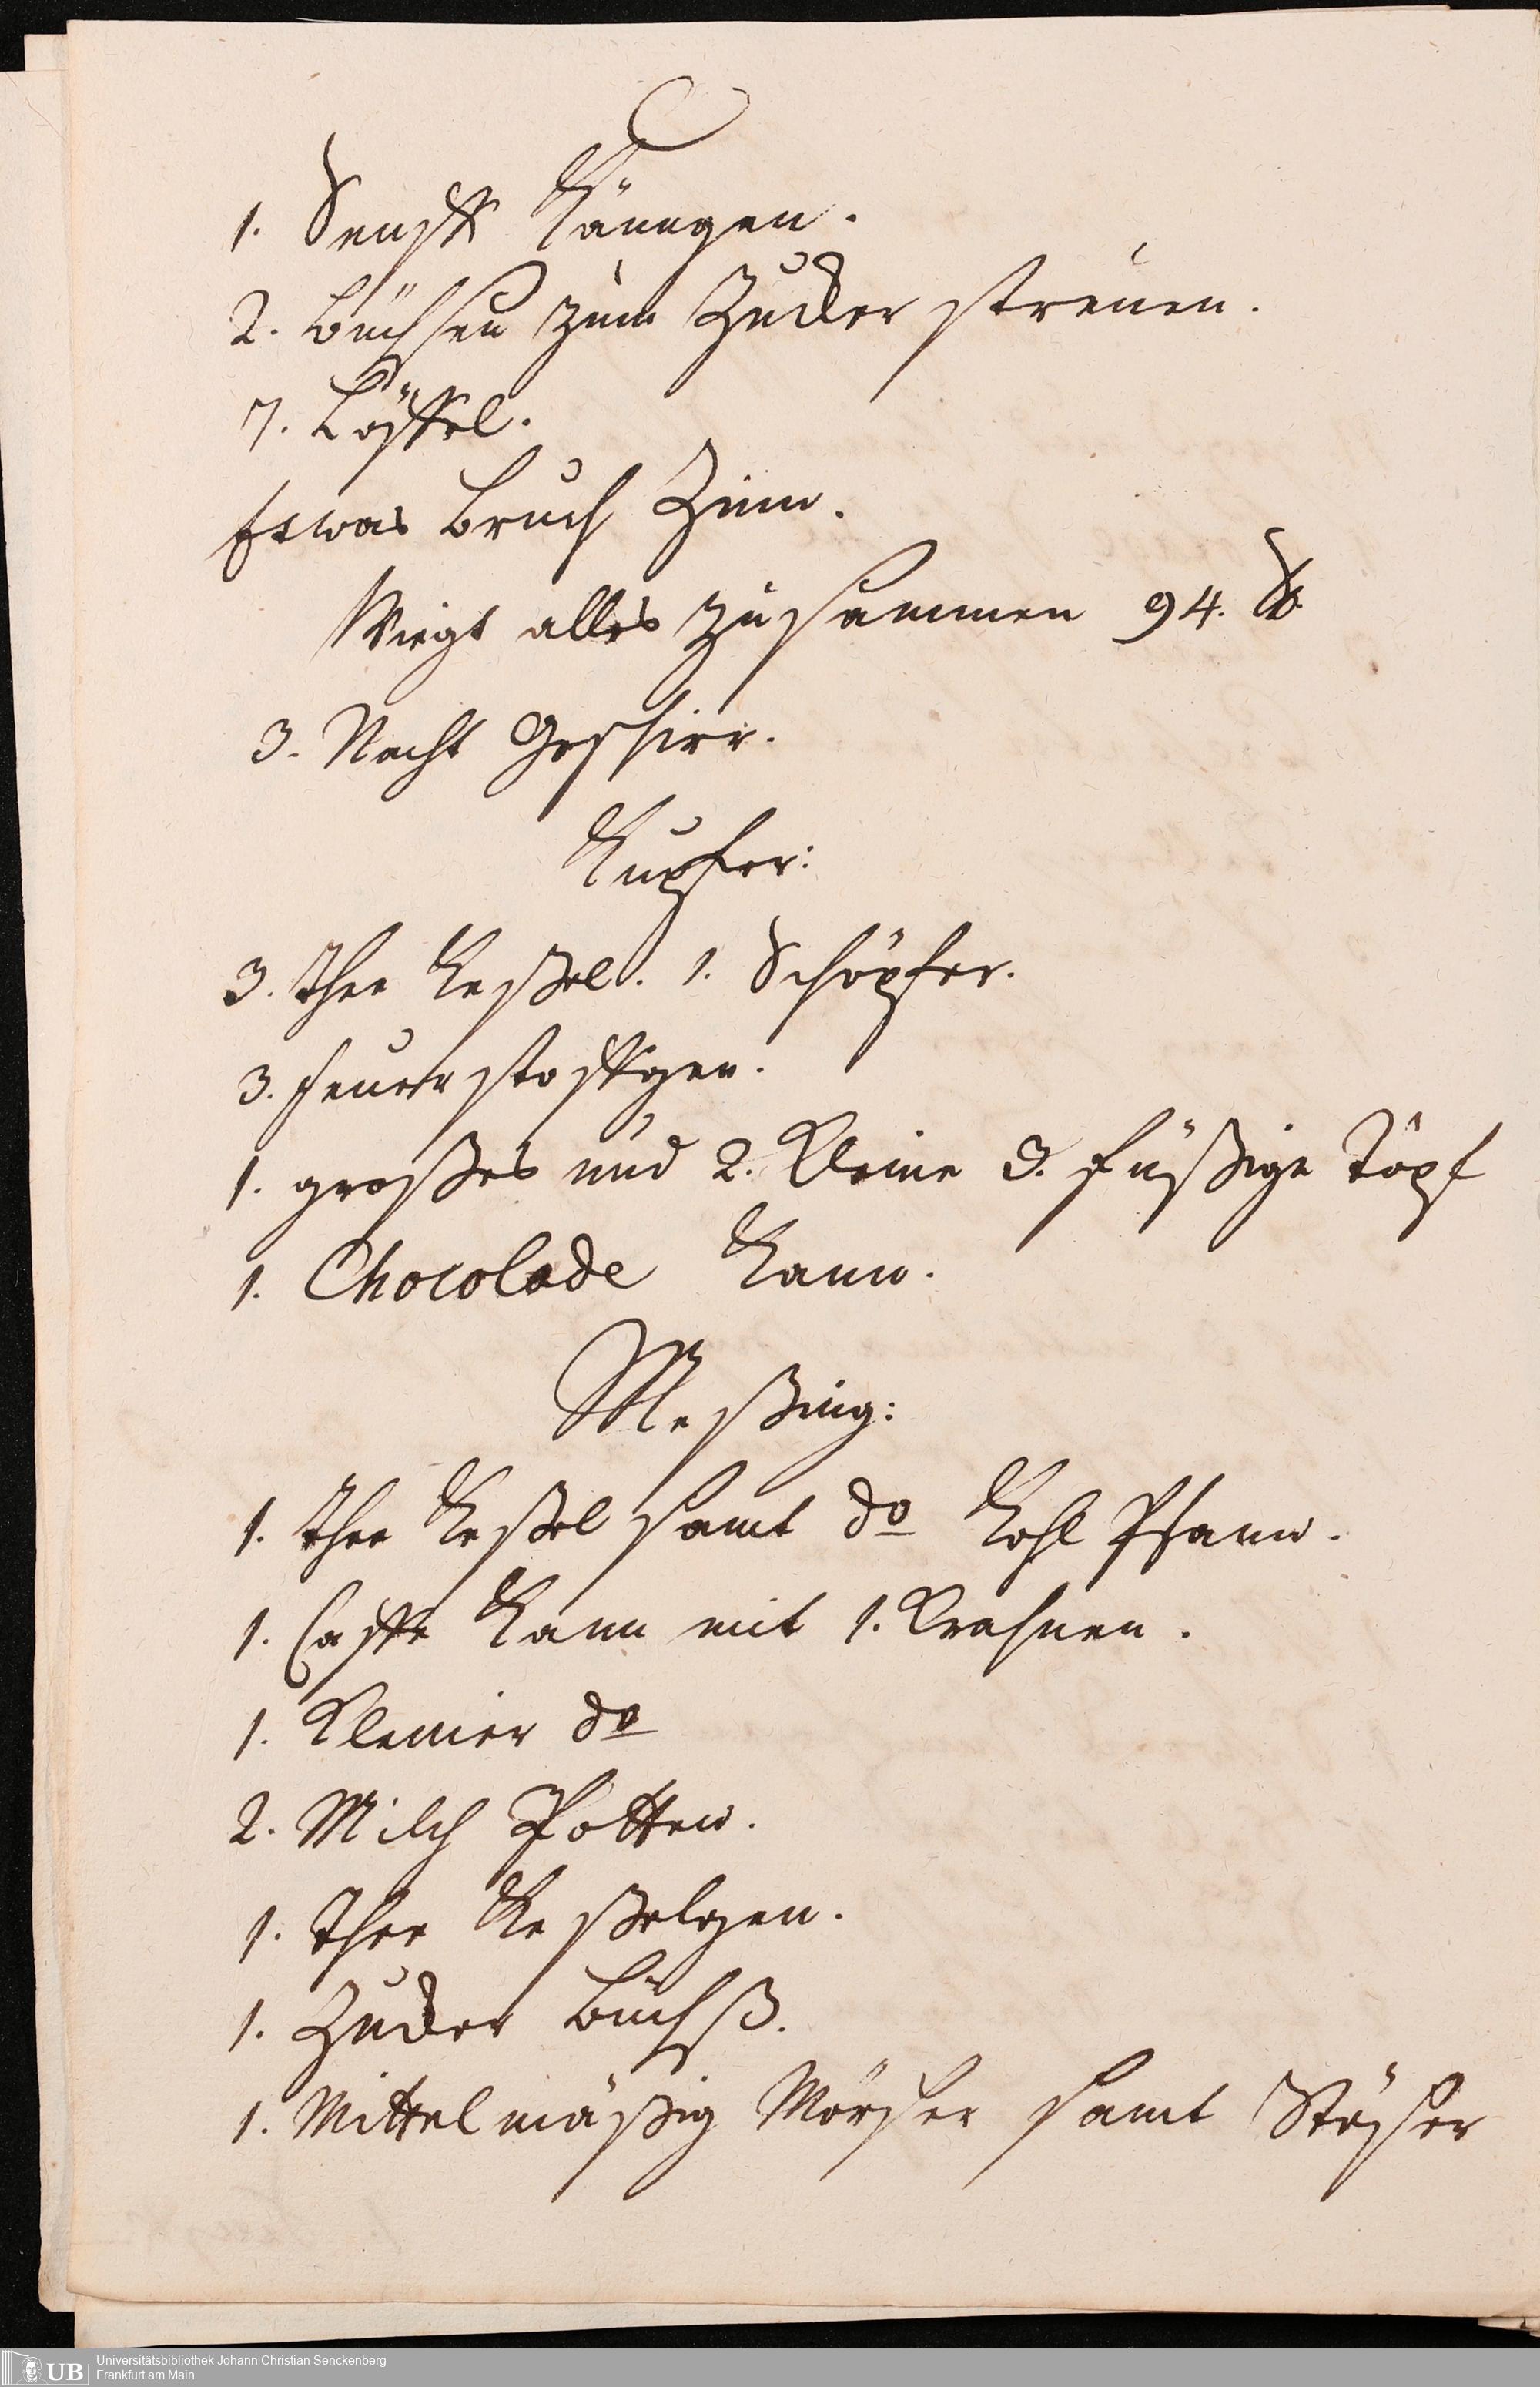 1. Senfft Känngen.
2. Büchsen zum Zucker streuen.
7. Löffel.
Etwas Bruch Zinn.
Wiegt alles zusammen 94. ℔
3. Nacht Geschirr.
Kupfer:
3. Thee Keßel. 1. Schöpfer.
3. Feuer
1. großes und 2. Kleine 3. füßige Töpf
1. Chocolade Kann.
Meßing:
1. Thee Keßel samt do Kohl Pfann.
1. Caffe Kann mit 1. Krahnen.
1. Kleiner do
2. Milch Potten.
1. Thee Keßelgen.
1. Zucker Büchß.
1. Mittelmäßig Mörser samt Stößer
Universitätsbibliothek Johann Christian Senckenberg
Frankfurt am Main
UB